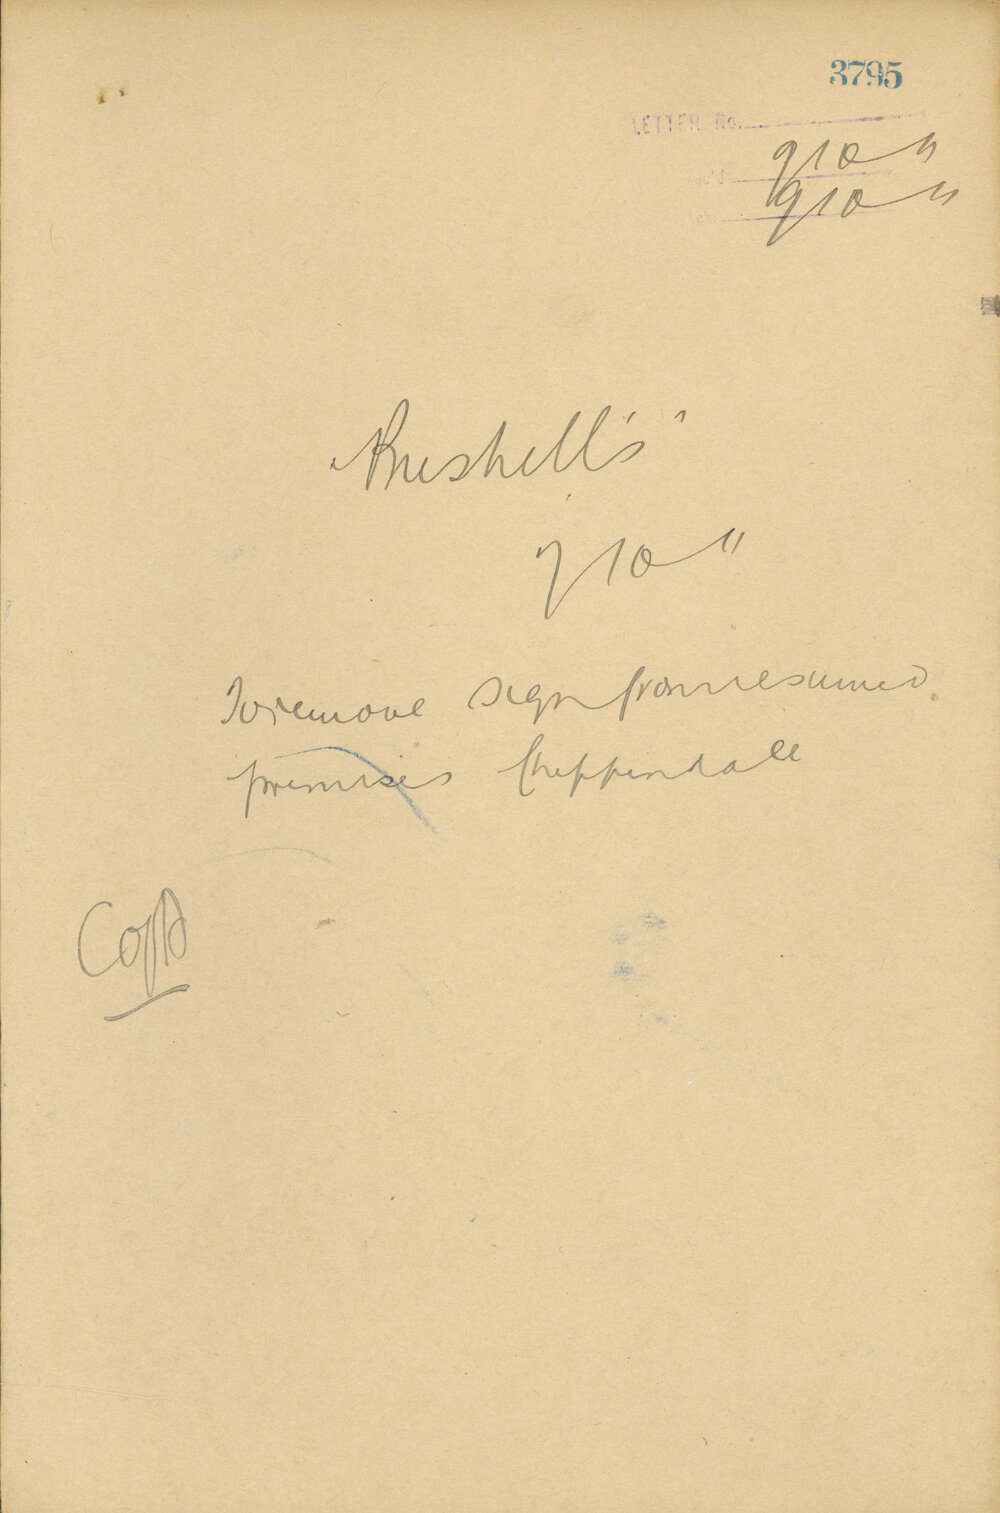 3795
LETTER No.
Rec'd
9 10 11
9 10 11
"Bushell's"
9 10 11
To remove sign from resumed
premises Chippendale